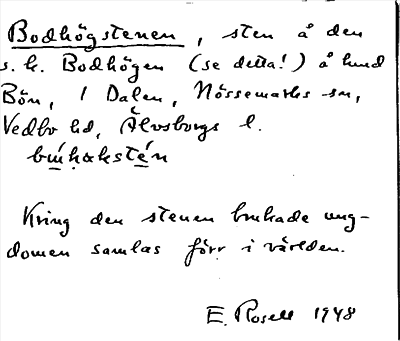 Bodhögstenen, sten å den
s. k. Bodhögen (se detta!) å hund
Bön, 1 Dalen, Nössemarks sn,
Vedbo hd, Älvsborgs l.
Kring den stenen brukade ung-
domen samlas förr i världen.
E. Rosell 1948